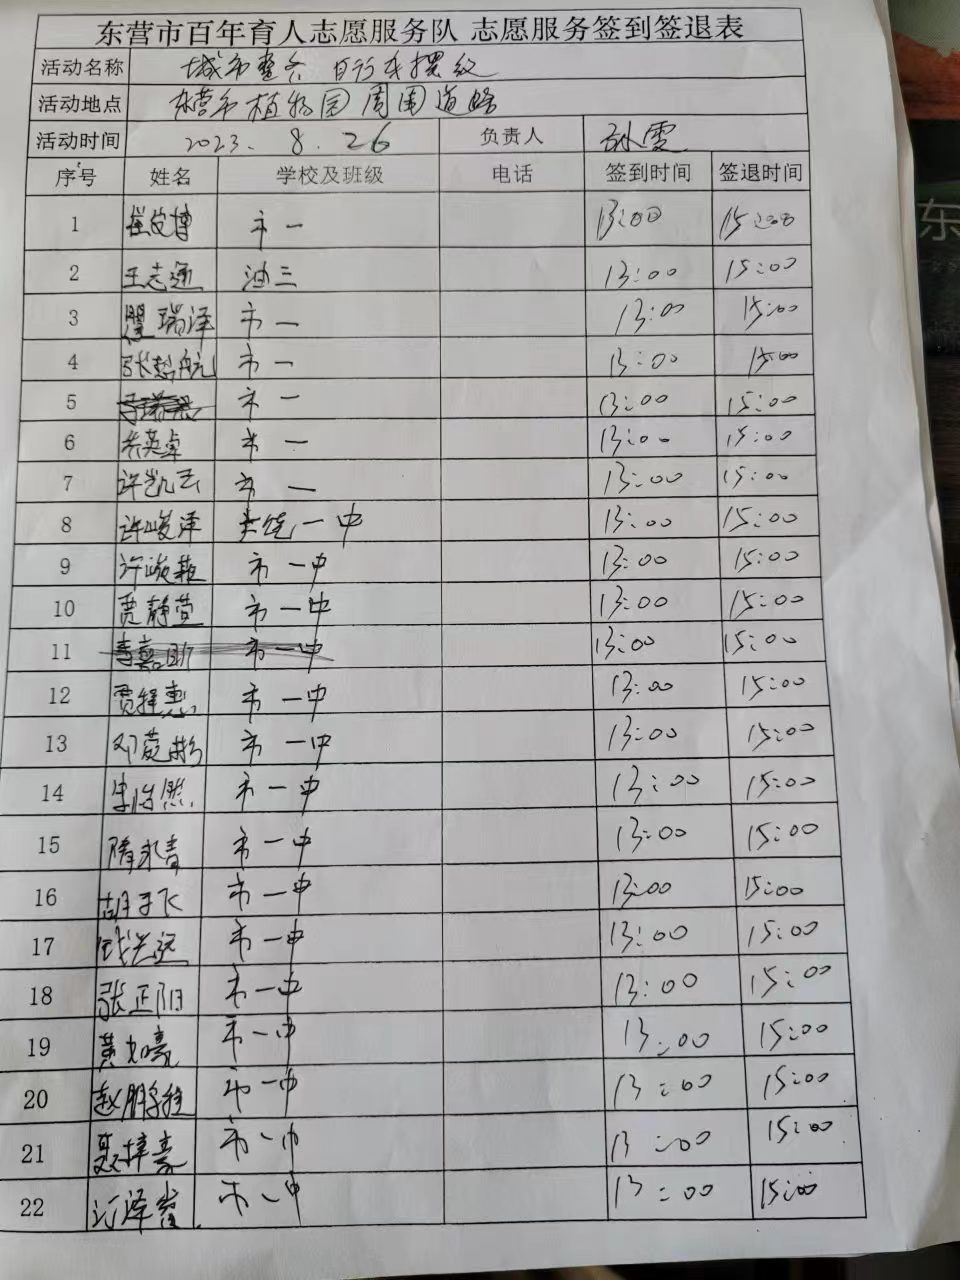 东营市百年育人志愿服务队 志愿服务签到签退表
活动名称 城市整齐 自行车摆放
活动地点 东营市植物园周围道路
活动时间 2023.8.26 负责人 孙雯
序号 姓名 学校及班级 电话 签到时间 签退时间
1 市一 13:00 15:00
2 王志通 油三 13:00 15:00
3 瞿瑞泽 市一 13:00 15:00
4 张超航 市一 13:00 15:00
5 市一 13:00 15:00
6 英卓 市一 13:00 15:00
7 许凯云 市一 13:00 15:00
8 许峻泽 一中 13:00 15:00
9 许峻赫 市一中 13:00 15:00
10 贾静萱 市一中 13:00 15:00
11 市一中 13:00 15:00
12 贾梓惠 市一中 13:00 15:00
13 邓 市一中 13:00 15:00
14 浩然 市一中 13:00 15:00
15 隋永青 市一中 13:00 15:00
16 胡子飞 市一中 13:00 15:00
17 市一中 13:00 15:00
18 张正阳 市一中 13:00 15:00
19 黄 豪 市一中 13:00 15:00
20 赵鹏程 市一中 13:00 15:00
21 聂梓豪 市一中 13:00 15:00
22 泽 市一中 13:00 15:00
东